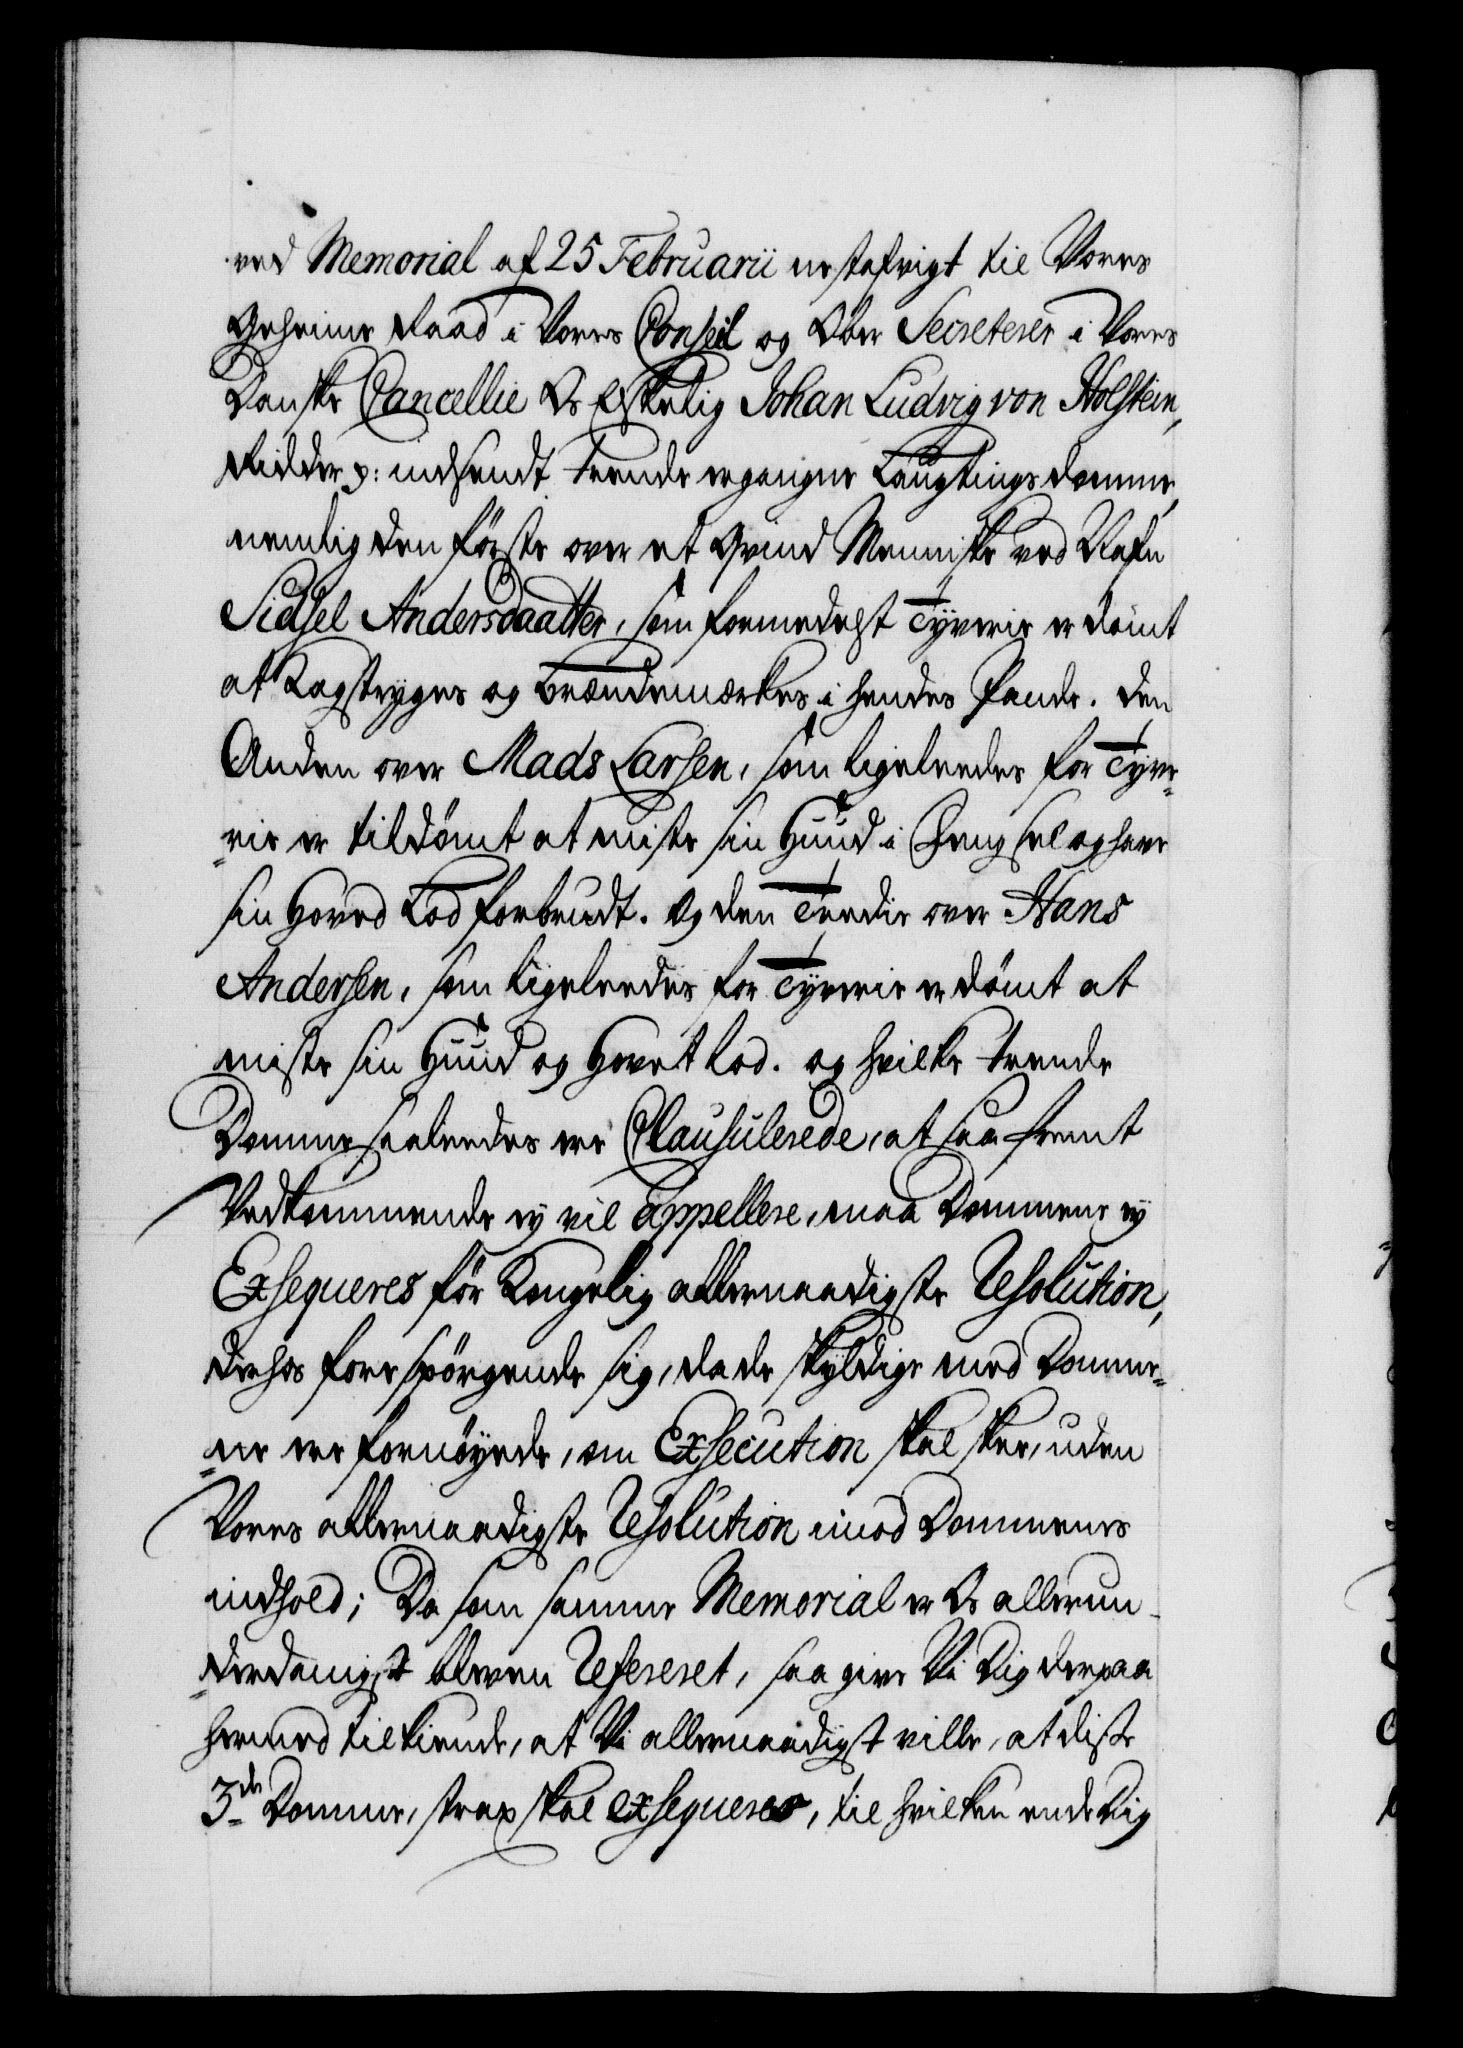 ved Memorial af 25 Februarii nestafvigt til Vores
Geheime Raad i Vores Conseil og Ober Secreterer i Vores
Danske Cancellie Os Elskelig Johan Ludvig von Holstein,
Ridder p: indsendt trende ergangne Laugtings Domme,
nemlig den förste over et Qvind Menniske ved Nafn
Sidsel Andersdaatter, som formedelst Tyverie er dömt
at Kagstryges og brændemærkes i hendes Pande. Den
Anden over Mads Larsen, som ligeleedes for Tyve=
=rie er tildömt at miste sin Huud i Fengsel og have
sin Hoved Lod forbrudt. Og den Tredie over Hans
Andersen, som ligeleedes for Tyverie er dömt at
miste sin Huud og Hovet Lod. og hvilke trende
Domme saaleedes ere Clausulerede, at saa fremt
Vedkommende ey vil appellere, maa Dommene ey
Exsequeres för Kongelig allernaadigste Resolution,
derhos forespörgende sig, da de skyldige med Domme=
=ne ere fornöyede, om Exsecution skal skee, uden
Vores allernaadigste Resolution imod Dommenes
indhold; Da som samme Memorial er Os allerun-
=derdanigst bleven Refereret, saa give Vi Dig derpaa
hermed tilkiende, at Vi allernaadigst ville, at diste
3de Domme, strax skal exsequeres, til hvilken ende Dig